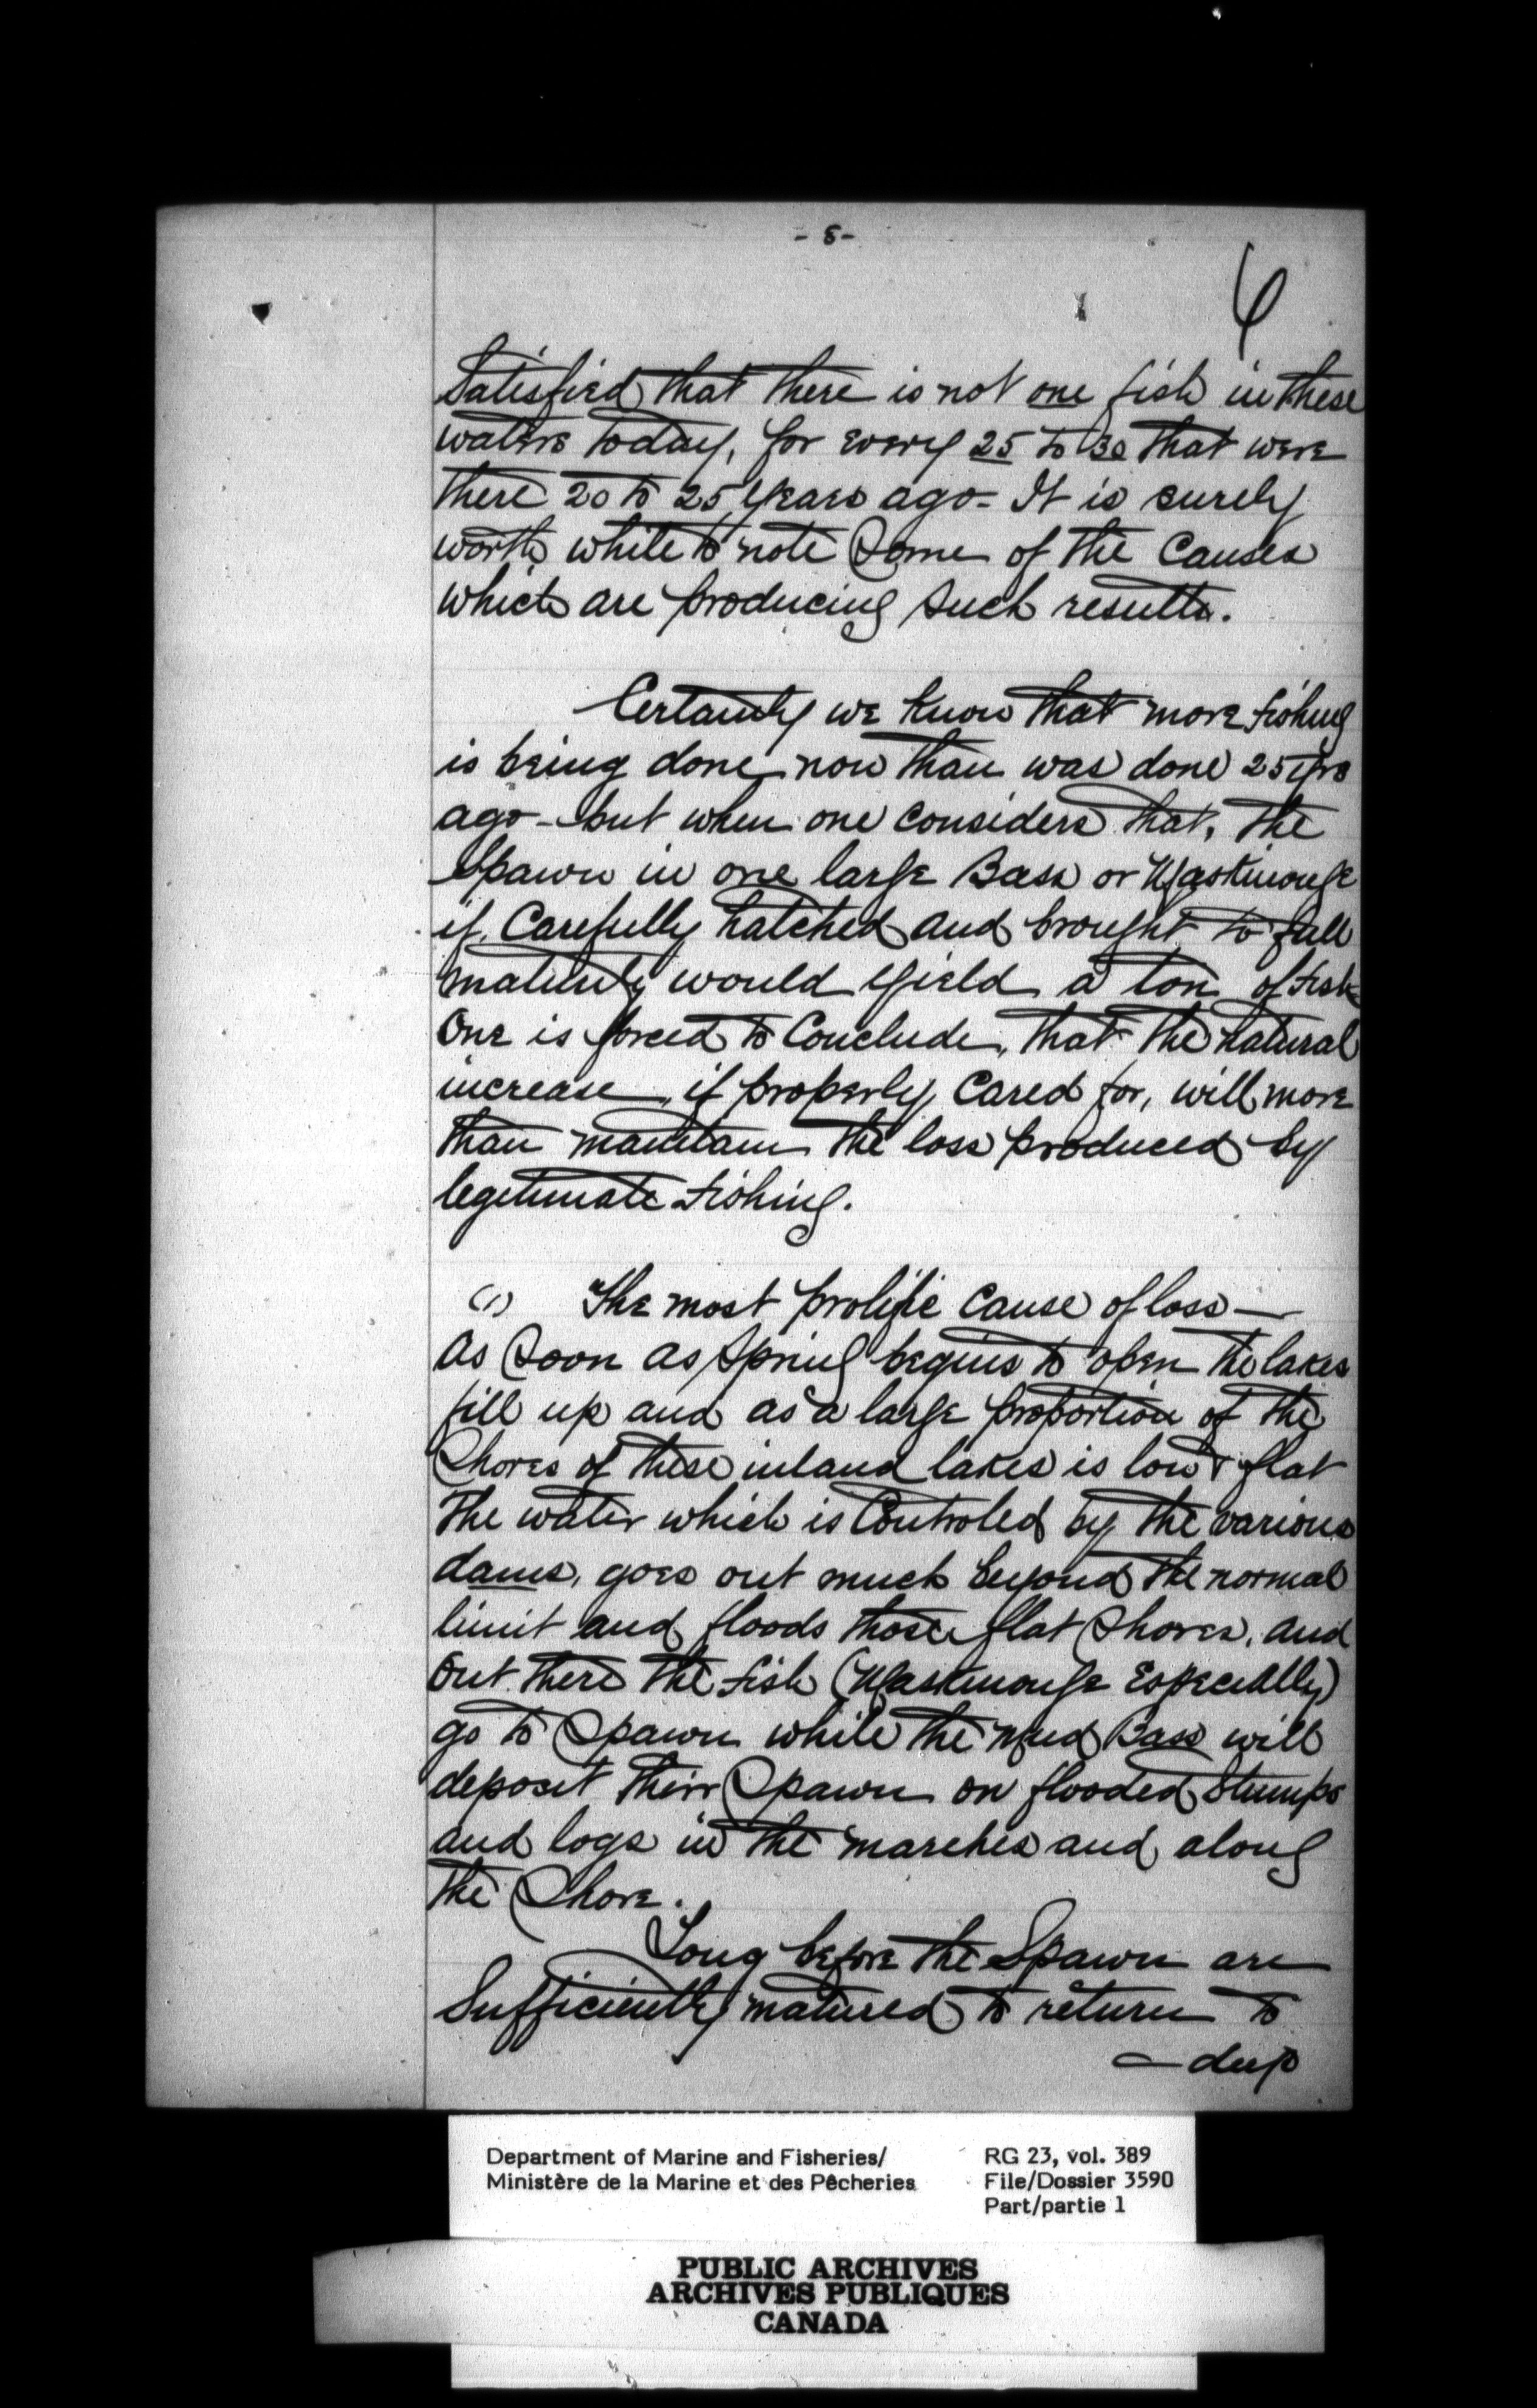 - 8 -
6
Satisfied that there is not one fish in these
waters today, for every 25 to 30 that were
there 20 to 25 years ago - It is surely
worth while to note Some of the Causes
which are producing such results.
Certainly we know that more fishing
is being done now than was done 25 yrs
ago - but when one considers that, the
Spawn in one large Bass or Maskinouge
if Carefully hatched and brought to full
maturity would yield a ton of fish
One is forced to Conclude, that the natural
increase, if properly Cared for, will more
than maintain the loss produced by
legitimate fishing.
(1) The most prolific cause of loss —
As Soon as Spring begins to open the lakes
fill up and as a large proportion of the
Shores of these inland lakes is low & flat
The water which is Controled by the various
dams, goes out much beyond the normal
limit and floods those flat Shores, and
out there the fish (Maskinouge Especially)
go to Spawn while the Mud Bass will
deposit their Spawn on flooded Stumps
and logs in the marshes and along
the Shore.
Long before the Spawn are
Sufficiently matured to return to
— deep
Department of Marine and Fisheries/ RG 23, vol. 389
Ministère de la Marine et des Pêcheries File/Dossier 3590
Part/partie 1
PUBLIC ARCHIVES
ARCHIVES PUBLIQUES
CANADA